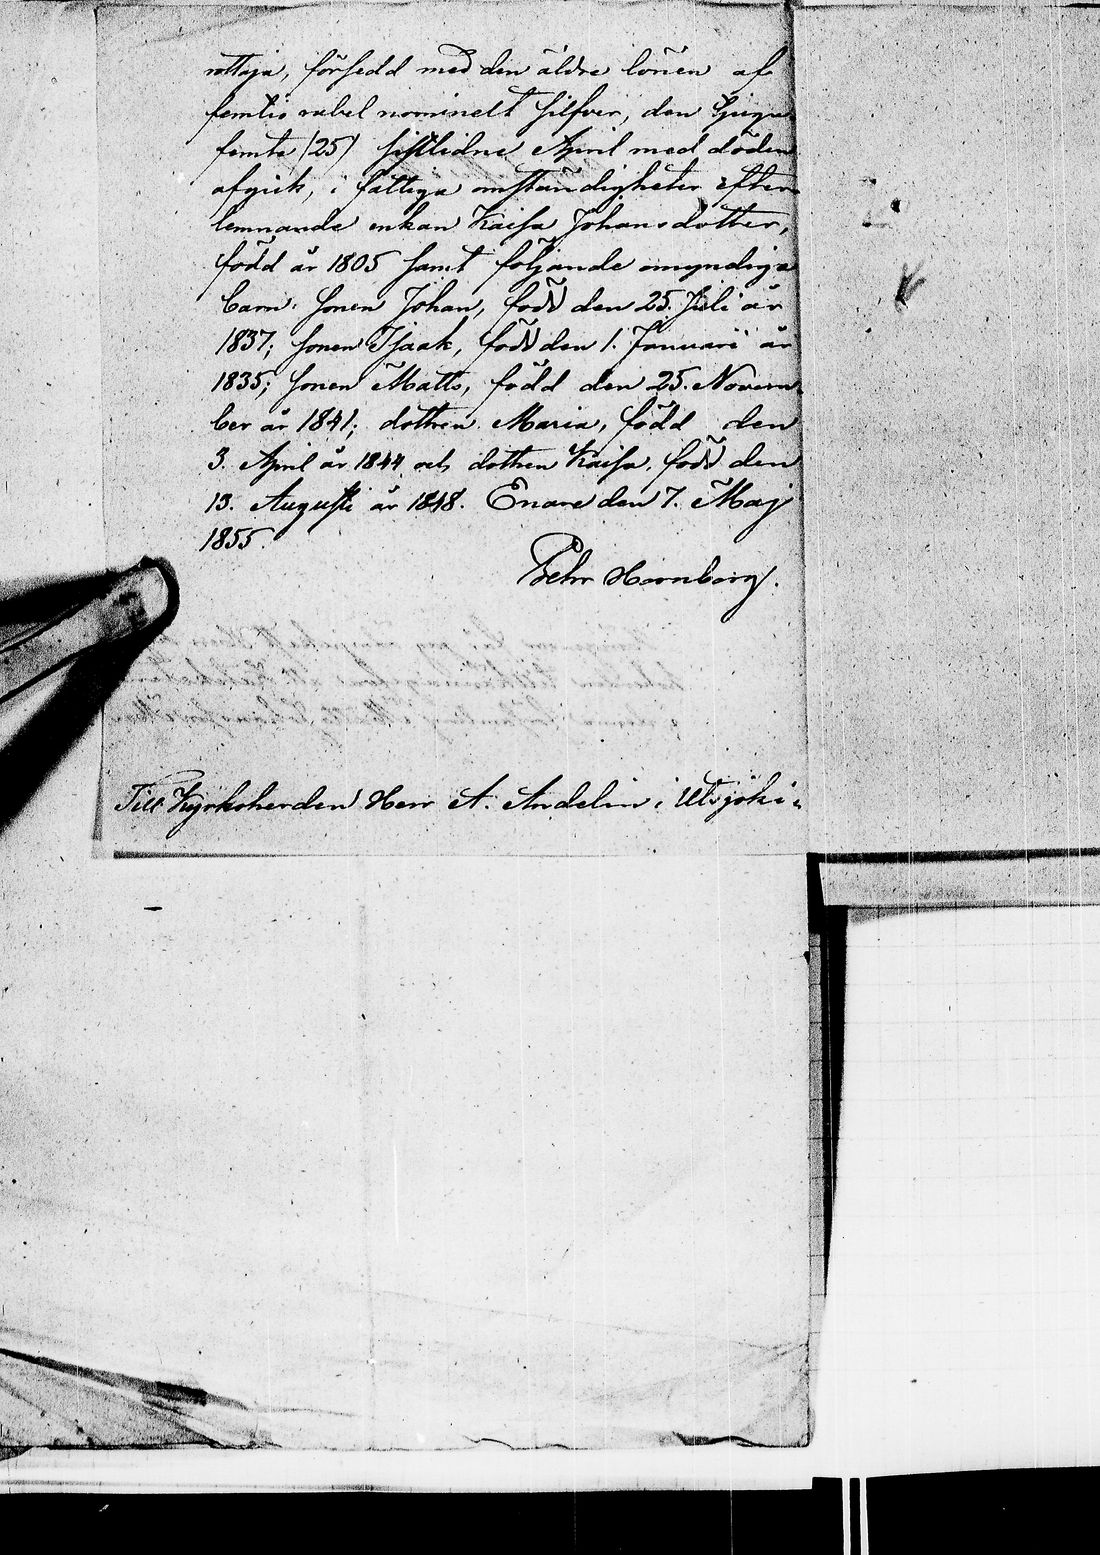 försedd med den äldre lönen af
femtio rubel nominelt silfver, den tjugu
femte (25) sistlidne April med döden
afgick, i fattiga omständigheter efter
lemnande enkan Kaisa Johansdotter,
född år 1805 samt följande omyndiga
barn: sonen Johan, född den 25. Juli år
1837; sonen Isaak, född den 1. Januarii år
1835; sonen Matts, född den 25. Novem
ber år 1841; dottren Maria, född den
3. April år 1844 och dottren Kaisa, född den
13. Augusti år 1848. Enare den 7. Maj
1855.
Pehr Hornborg.
Till Kyrkoherden Herr A. Andelin i Utsjoki